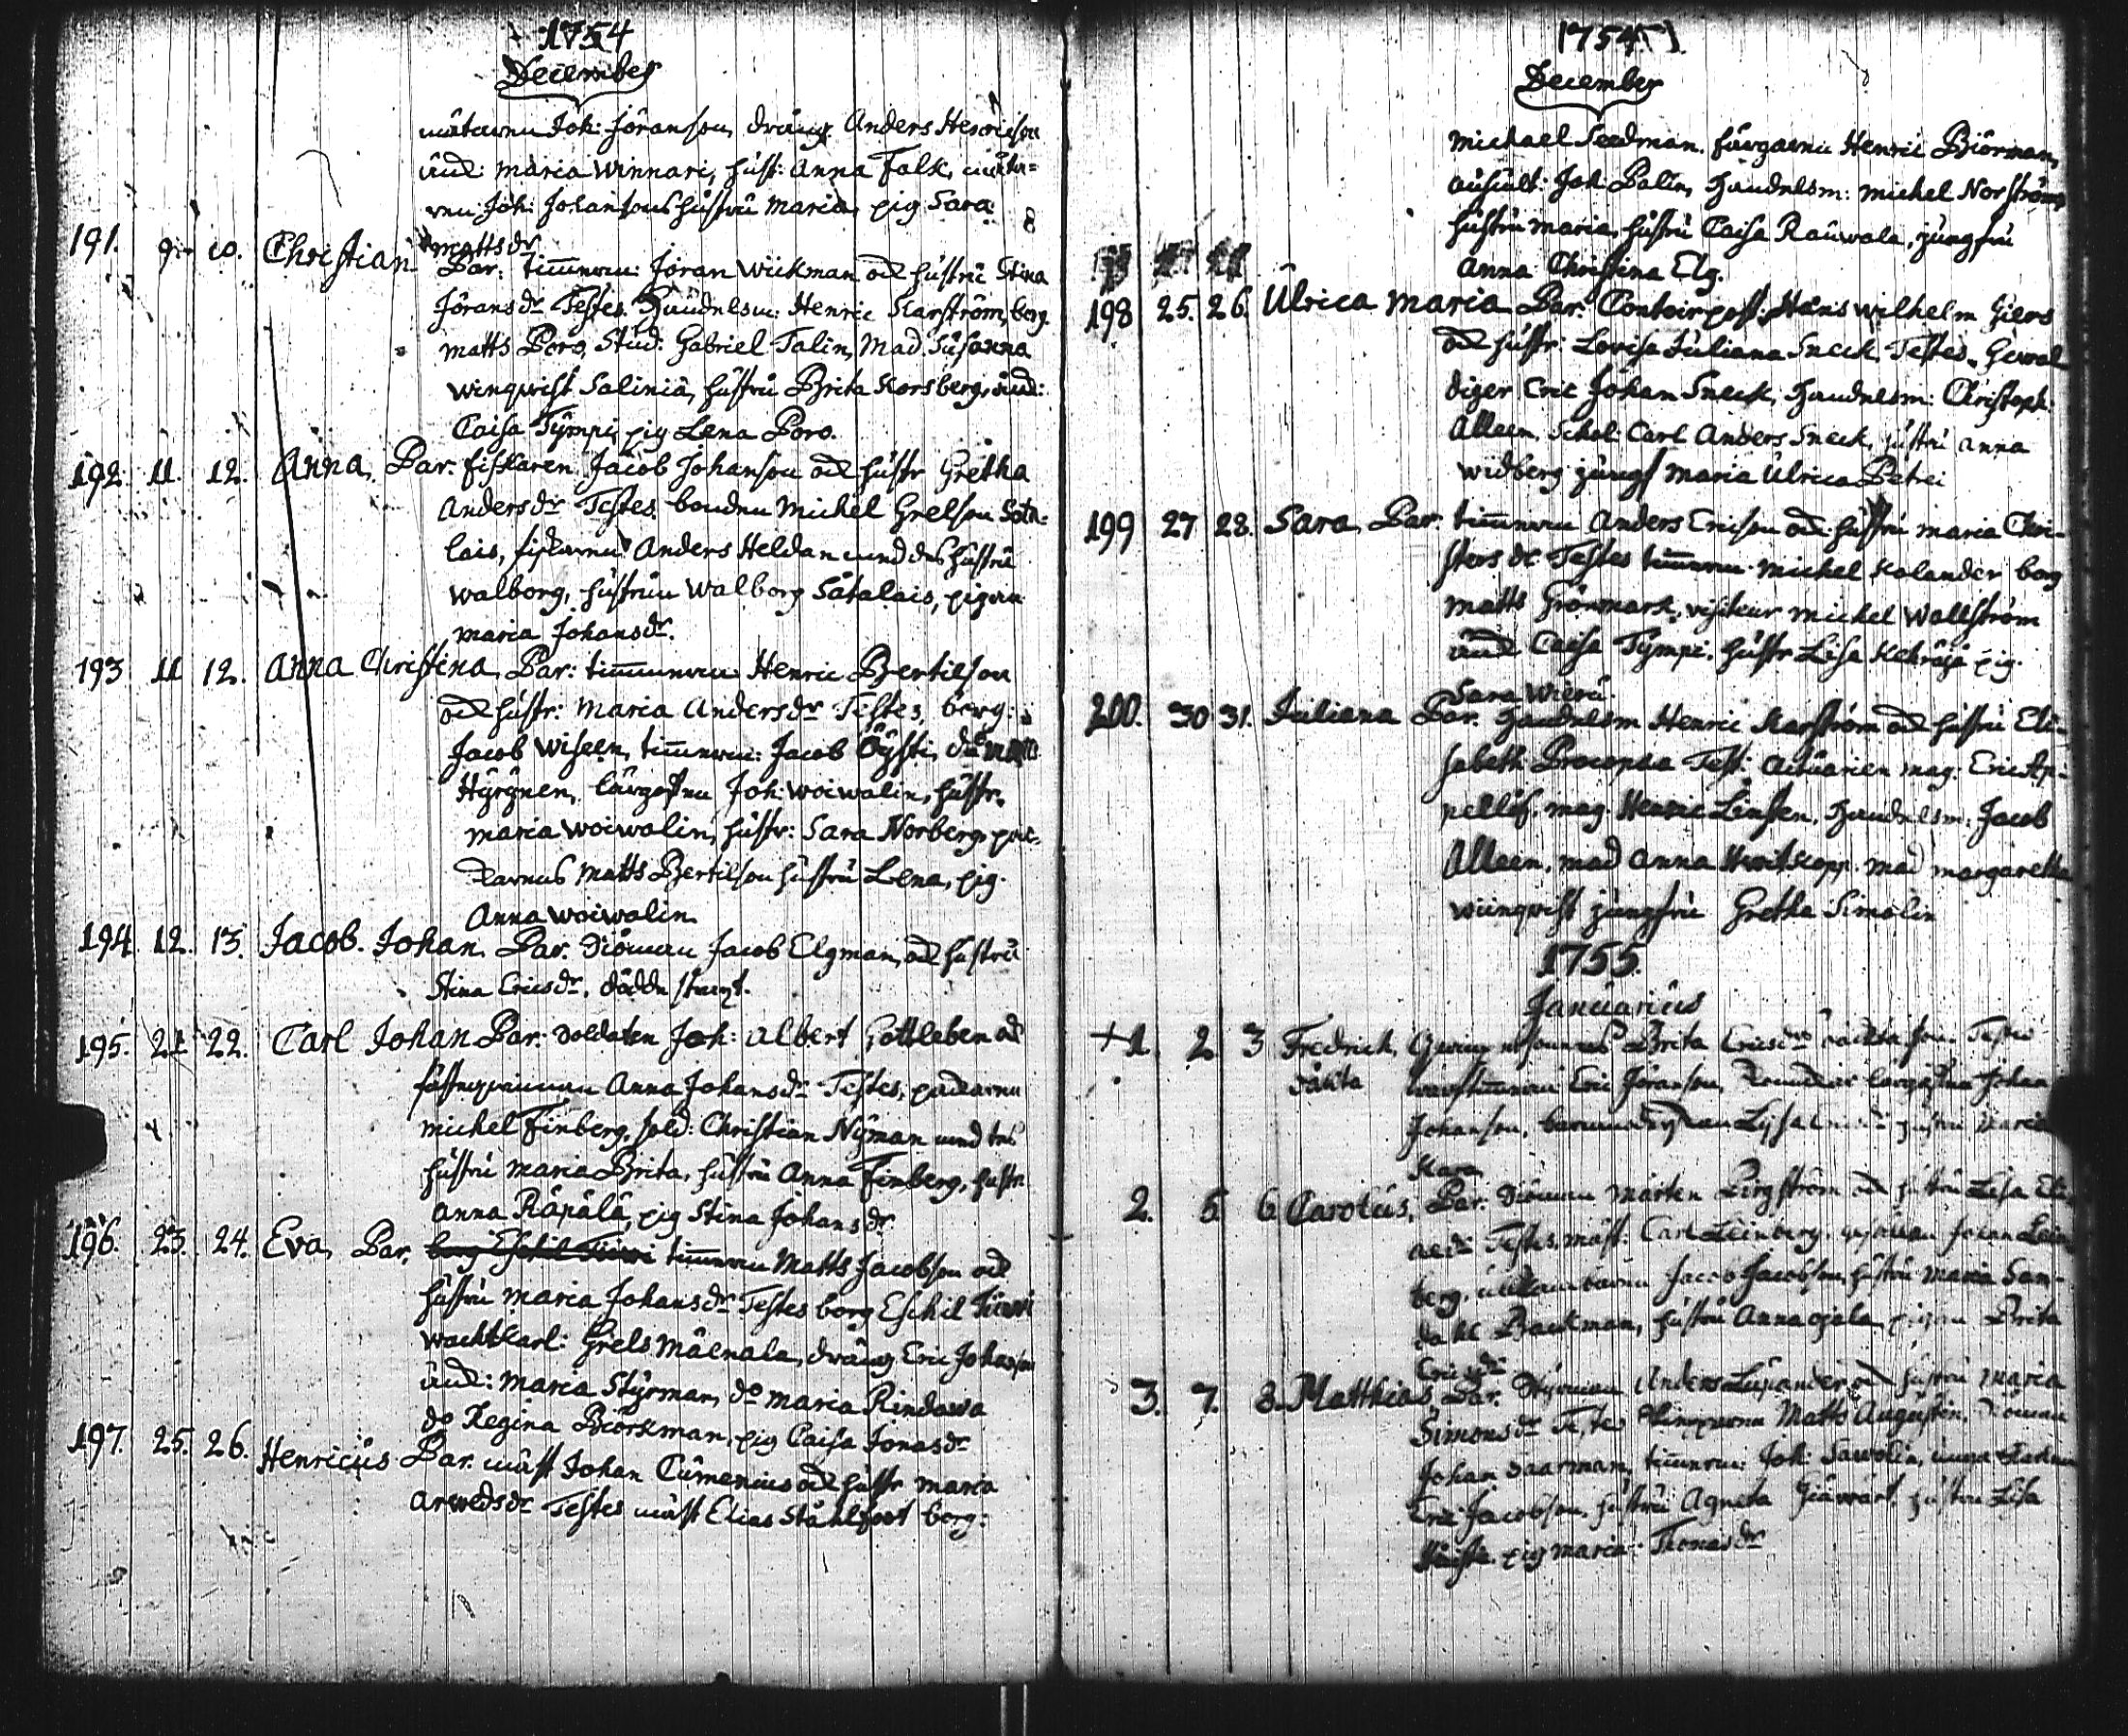 1754
December
mätaren Joh: Jöranson, dräng Anders Henricson
änck: maria Winnari, hust: Anna Falk, mäta=
ren Joh: Johansons hustru Maria, pig Sara
mattsdr
191. 9. 10. Christian Par: timmerm: Jöran Wiikman och hustru Stina
Jöransdr Testes. Handelsm: Henric Karström, borg.
matts Poro, Stud: Gabriel Talin, Mad. Susanna
winqwist Salinia, hustru Brita Korsberg, änck:
Caisa Tÿmpi, pig Lena Poro.
192. 11. 12. Anna, Par: fiskaren Jacob Johanson och hustr Gretha
Andersdr Testes. bonden Michel Grelson Såta-
lais, fiskaren Anders Heldan med des hustru
Walborg, hustrun Walborg Såtalais, pigan
maria Johansdr.
193 11 12. Anna Christina, Par: timmerm: Henric Bertilson
och hustr: Maria Andersdr Testes, borg:
Jacob Wiseen, timmerm: Jacob Öÿsti,
Hÿrÿnen, Joh: Woiwalin, hustr.
maria woiwalin, hustr: Sara Norberg, pac-
karens Matts Bertilson hustru Lena, pig.
Anna woiwalin.
194. 12. 13. Jacob. Johan. Par. Siöman Jacob Elgman, och hustru
Stina Ericsdr, dödde straxt.
195. 21 22. Carl Johan Par: Soldaten Joh: Albert Gottleben och
fästeqwinnan Anna Johansdr Testes, packaren
michel Finberg, sold: Christian Nÿman med des
hustru maria Brita, hustru Anna Finberg, hustr
anna Räpälä, pig Stina Johansdr
196. 23. 24. Eva, Par, borg Eschil timmerm Matts Jacobson och
hustru maria Johansdr Testes borg Eschil
wachtkarl: Grels Mäenala, dräng Eric Johanson
änck: maria Stÿrman, do maria Rindawa
do Regina Biörkman, pig Caisa Jonasdr
197. 25. 26. Henricus Par. mäst Johan Cumenius och hustr maria
Arwedsdr Testes mäst Elias Ståhlfoot borg:
1754
December
Michael Seedman. färgaren Henric Biörman,
auscult: Joh Palin, Handelsm: michel Norströms
hustru maria, hustru Caisa Rauwala, jungfru
Anna Christina Elg.
198 25. 26. Ulrica Maria Par: Contoirpost: Hans Wilhelm Giers
och hustr: Lovisa Juliana Sneck. Testes. Gewal
diger Eric Johan Sneck, Handelsm: Christoph.
Alleen, Schol: Carl Anders Sneck, hustru anna
widberg jungf Maria Ulrica Petrei
199 27 28. Sara, Par. timmerm Anders Ericson och hustru maria Chri-
stersdr Testes timmerm michel Kalander borg
matts Grönmark, visiteur michel Wallström
änck Caisa Tÿmpi. hustr Lisa pig.
Sara Wieru.
200. 30 31. Juliana Par. Handelsm Henric Karström och hustru Eli-
sabeth Procopaea Test: Actuarien mag: Eric Ap-
pellöf. mag Henric Linsten, Handelsm: Jacob
Alleen, mad Anna Hwitskopp. mad margaretha
wiinqwist jungfru Gretha Simolin
1755.
Januarius
+1. 2. 3 Fredrich, Brita Ericsdrs oächta son. Testes
oäkta Eric Jöranson, Johan
Johanson, hustru Maria
Kara
2. 5. 6. Carolus, Par. Siöman Mårten Bergström och hustru Lisa Eli-
aedr Testes, mäst: Carl Leinberg, Johan Lein
berg, Jacob Jacobson, hustru maria San-
dahl Backman, hustru Anna ojala pigan Brita
Ericsdr
3. 7. 8. Matthias, Par. Stÿrman Anders Lupander och hustru maria
Simonsdr Testes Matts Augustin. Siöman
Johan Saarman, timmerm: Joh: Sawolin,
Eric Jacobson, hustru Agneta hustru Lisa
pig maria: Thomasdr